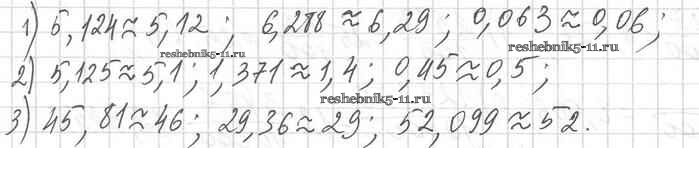 1) 5,124≈5,12; 6,288≈6,29; 0,063≈0,06;
reshebnik5-11.ru
2) 5,125≈5,1; 1,371≈1,4; 0,45≈0,5;
reshebnik5-11.ru
3) 45,81≈46; 29,36≈29; 52,099≈52.